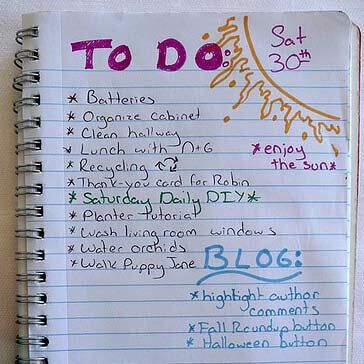 TO DO:
Sat
30th
* Batteries
* Organize cabinet
* Clean hallway
* Lunch with N+G
* Recycling
* Thank-you card for Robin
* Saturday Daily DIY *
* Planter Tutorial
* Wash living room windows
* Water orchids
* Walk Puppy Jane
* enjoy
the sun *
BLOG:
* highlight author
comments
* Fall Roundup button
* Halloween button